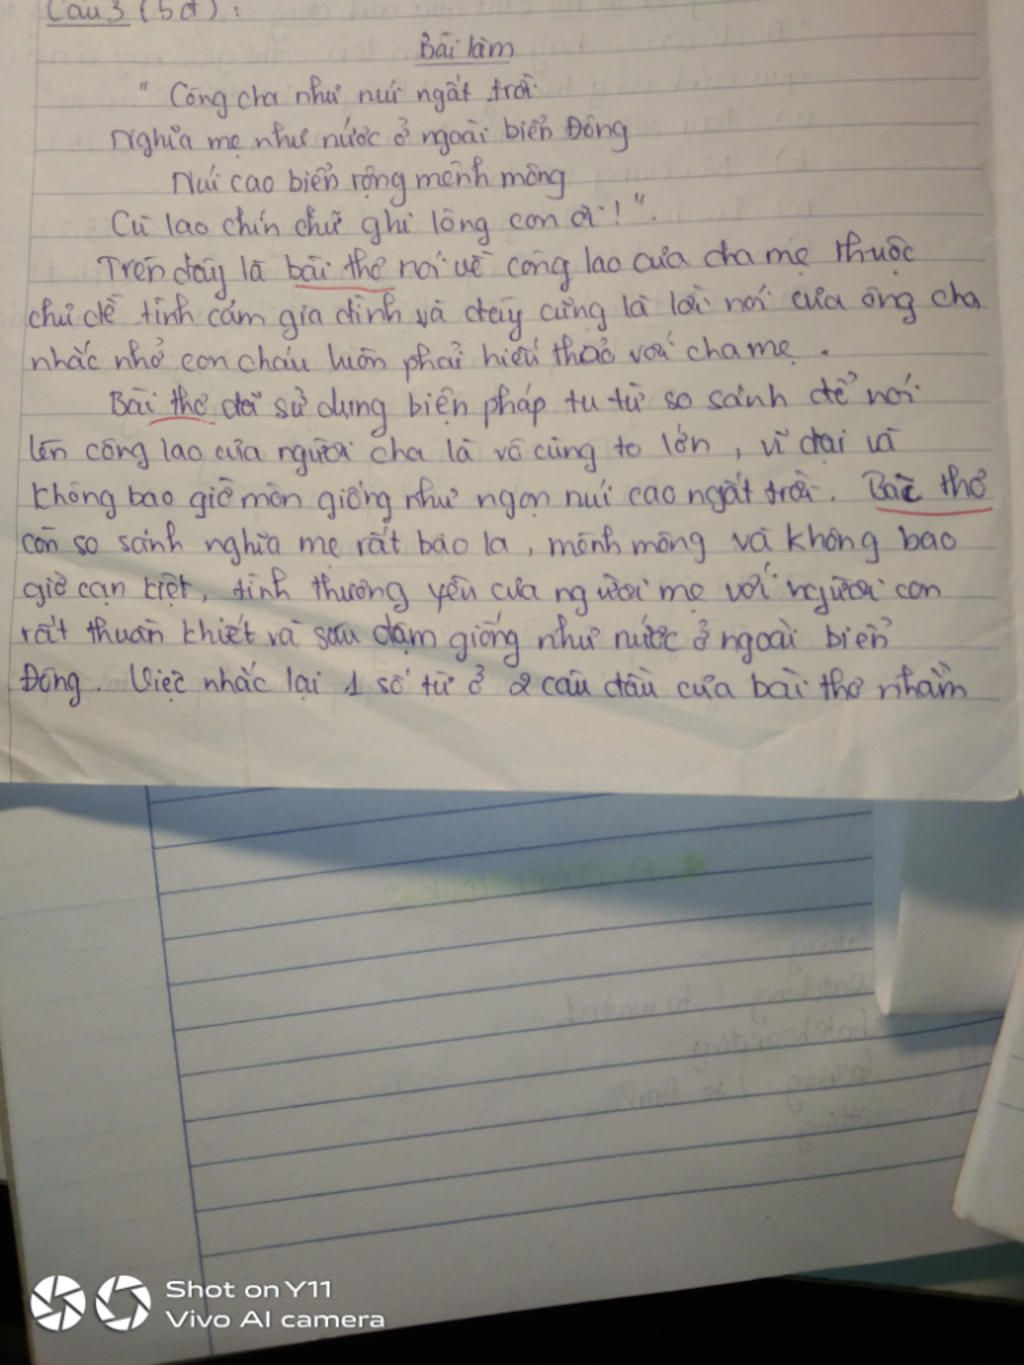 Câu 3 (5đ) :
Bài làm
" Công cha như núi ngất trời
Nghĩa mẹ như nước ở ngoài biển Đông
Núi cao biển rộng mênh mông
Cù lao chín chữ ghi lòng con ơi ! ".
Trên đây là bài thơ nói về công lao của cha mẹ thuộc
chủ đề tình cảm gia đình và đây cũng là lời nói của ông cha
nhắc nhở con cháu luôn phải hiếu thảo với cha mẹ .
Bài thơ đã sử dụng biện pháp tu từ so sánh để nói
lên công lao của người cha là vô cùng to lớn , vĩ đại và
không bao giờ mòn giống như ngọn núi cao ngất trời . Bài thơ
còn so sánh nghĩa mẹ rất bao la , mênh mông và không bao
giờ cạn kiệt , tình thương yêu của người mẹ với người con
rất thuần khiết và sâu đậm giống như nước ở ngoài biển
Đông . Việc nhắc lại 1 số từ ở 2 câu đầu của bài thơ nhằm
Shot on Y11
Vivo AI camera